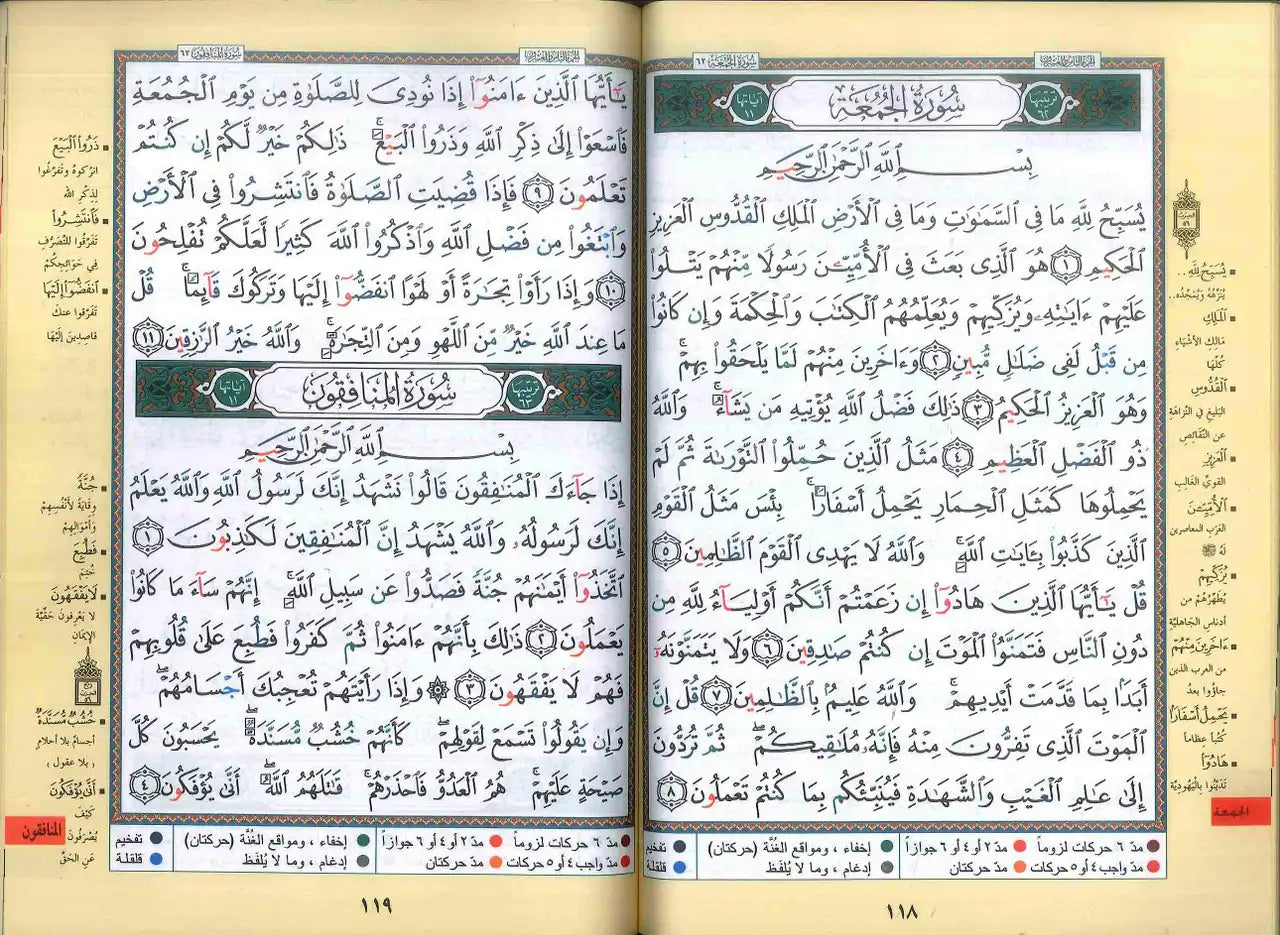 الجزء الثامن والعشرون
سورة الجمعة ٦٢
ترتيبها ٦٢
سُورَةُ الجُمُعَة
آياتها ١١
بِسْمِ اللَّهِ الرَّحْمَٰنِ الرَّحِيمِ
يُسَبِّحُ لِلَّهِ مَا فِى السَّمَٰوَٰتِ وَمَا فِى الْأَرْضِ الْمَلِكِ الْقُدُّوسِ الْعَزِيزِ
الْحَكِيمِ ١ هُوَ الَّذِى بَعَثَ فِى الْأُمِّيِّـۧنَ رَسُولًا مِّنْهُمْ يَتْلُوا۟
عَلَيْهِمْ ءَايَٰتِهِۦ وَيُزَكِّيهِمْ وَيُعَلِّمُهُمُ الْكِتَٰبَ وَالْحِكْمَةَ وَإِن كَانُوا۟
مِن قَبْلُ لَفِى ضَلَٰلٍ مُّبِينٍ ٢ وَءَاخَرِينَ مِنْهُمْ لَمَّا يَلْحَقُوا۟ بِهِمْ ۚ
وَهُوَ الْعَزِيزُ الْحَكِيمُ ٣ ذَٰلِكَ فَضْلُ اللَّهِ يُؤْتِيهِ مَن يَشَآءُ ۚ وَاللَّهُ
ذُو الْفَضْلِ الْعَظِيمِ ٤ مَثَلُ الَّذِينَ حُمِّلُوا۟ التَّوْرَىٰةَ ثُمَّ لَمْ
يَحْمِلُوهَا كَمَثَلِ الْحِمَارِ يَحْمِلُ أَسْفَارًۢا ۚ بِئْسَ مَثَلُ الْقَوْمِ
الَّذِينَ كَذَّبُوا۟ بِـَٔايَٰتِ اللَّهِ ۚ وَاللَّهُ لَا يَهْدِى الْقَوْمَ الظَّٰلِمِينَ ٥
قُلْ يَٰٓأَيُّهَا الَّذِينَ هَادُوٓا۟ إِن زَعَمْتُمْ أَنَّكُمْ أَوْلِيَآءُ لِلَّهِ مِن
دُونِ النَّاسِ فَتَمَنَّوُا۟ الْمَوْتَ إِن كُنتُمْ صَٰدِقِينَ ٦ وَلَا يَتَمَنَّوْنَهُۥٓ
أَبَدًۢا بِمَا قَدَّمَتْ أَيْدِيهِمْ ۚ وَاللَّهُ عَلِيمٌۢ بِالظَّٰلِمِينَ ٧ قُلْ إِنَّ
الْمَوْتَ الَّذِى تَفِرُّونَ مِنْهُ فَإِنَّهُۥ مُلَٰقِيكُمْ ۖ ثُمَّ تُرَدُّونَ
إِلَىٰ عَٰلِمِ الْغَيْبِ وَالشَّهَٰدَةِ فَيُنَبِّئُكُم بِمَا كُنتُمْ تَعْمَلُونَ ٨
يُسَبِّحُ لِلَّهِ..
يُنَزِّهُهُ وَيُمَجِّدُه..
الْمَلِكِ
مَالِكِ الأشْيَاءِ
كُلِّهَا
الْقُدُّوسِ
البَلِيغِ في النَّزَاهَةِ
عن النَّقَائِصِ
الْعَزِيزِ
القويِّ الغَالِبِ
الْأُمِّيِّـۧنَ
العَرَبِ المعاصرين
لَهُ ﷺ
يُزَكِّيهِمْ
يُطَهِّرُهُمْ من
أدناسِ الجاهليَّةِ
ءَاخَرِينَ مِنْهُمْ
من العرب الذين
جاؤُوا بعدُ
يَحْمِلُ أَسْفَارًا
كُتُباً عِظاماً
هَادُوٓا۟
تَدَيَّنُوا باليَهُوديَّةِ
الجمعة
مدّ ٦ حركات لزوماً
مدّ ٢ أو ٤ أو ٦ جوازاً
إخفاء ، ومواقع الغُنَّة (حركتان)
تفخيم
مدّ واجب ٤ أو ٥ حركات
مدّ حركتان
إدغام ، وما لا يُلفَظ
قلقلة
١١٨
الجزء الثامن والعشرون
سورة المنافقون ٦٣
يَٰٓأَيُّهَا الَّذِينَ ءَامَنُوٓا۟ إِذَا نُودِىَ لِلصَّلَوٰةِ مِن يَوْمِ الْجُمُعَةِ
فَاسْعَوْا۟ إِلَىٰ ذِكْرِ اللَّهِ وَذَرُوا۟ الْبَيْعَ ۚ ذَٰلِكُمْ خَيْرٌ لَّكُمْ إِن كُنتُمْ
تَعْلَمُونَ ٩ فَإِذَا قُضِيَتِ الصَّلَوٰةُ فَانتَشِرُوا۟ فِى الْأَرْضِ
وَابْتَغُوا۟ مِن فَضْلِ اللَّهِ وَاذْكُرُوا۟ اللَّهَ كَثِيرًا لَّعَلَّكُمْ تُفْلِحُونَ
١٠ وَإِذَا رَأَوْا۟ تِجَٰرَةً أَوْ لَهْوًا انفَضُّوٓا۟ إِلَيْهَا وَتَرَكُوكَ قَآئِمًا ۚ قُلْ
مَا عِندَ اللَّهِ خَيْرٌ مِّنَ اللَّهْوِ وَمِنَ التِّجَٰرَةِ ۚ وَاللَّهُ خَيْرُ الرَّٰزِقِينَ ١١
ترتيبها ٦٣
سُورَةُ المُنَافِقُون
آياتها ١١
بِسْمِ اللَّهِ الرَّحْمَٰنِ الرَّحِيمِ
إِذَا جَآءَكَ الْمُنَٰفِقُونَ قَالُوا۟ نَشْهَدُ إِنَّكَ لَرَسُولُ اللَّهِ وَاللَّهُ يَعْلَمُ
إِنَّكَ لَرَسُولُهُۥ وَاللَّهُ يَشْهَدُ إِنَّ الْمُنَٰفِقِينَ لَكَٰذِبُونَ ١
اتَّخَذُوٓا۟ أَيْمَٰنَهُمْ جُنَّةً فَصَدُّوا۟ عَن سَبِيلِ اللَّهِ ۚ إِنَّهُمْ سَآءَ مَا كَانُوا۟
يَعْمَلُونَ ٢ ذَٰلِكَ بِأَنَّهُمْ ءَامَنُوا۟ ثُمَّ كَفَرُوا۟ فَطُبِعَ عَلَىٰ قُلُوبِهِمْ
فَهُمْ لَا يَفْقَهُونَ ٣ ۞ وَإِذَا رَأَيْتَهُمْ تُعْجِبُكَ أَجْسَامُهُمْ ۖ
وَإِن يَقُولُوا۟ تَسْمَعْ لِقَوْلِهِمْ ۖ كَأَنَّهُمْ خُشُبٌ مُّسَنَّدَةٌ ۖ يَحْسَبُونَ كُلَّ
صَيْحَةٍ عَلَيْهِمْ ۚ هُمُ الْعَدُوُّ فَاحْذَرْهُمْ ۚ قَٰتَلَهُمُ اللَّهُ ۖ أَنَّىٰ يُؤْفَكُونَ ٤
ذَرُوا۟ الْبَيْعَ
اتركوهُ وتَفَرَّغُوا
لِذِكْرِ الله
فَانتَشِرُوا۟
تَفَرَّقُوا للتَّصَرُّفِ
فِي حَوَائِجِكُمْ
انفَضُّوٓا۟ إِلَيْهَا
تَفَرَّقُوا عنكَ
قاصِدِينَ إلَيْهَا
جُنَّةً
وِقَايَةً لأَنْفُسِهِمْ
وأمْوَالِهِمْ
فَطُبِعَ
خُتِمَ
لَا يَفْقَهُونَ
لا يَعْرِفُونَ حَقِّيَّةَ
الإيمَانِ
خُشُبٌ مُّسَنَّدَةٌ
أجسامٌ بلا أحلامٍ
( بلا عقول )
أَنَّىٰ يُؤْفَكُونَ
كَيْفَ
يُصْرَفُونَ
عَنِ الحَقِّ
المنافقون
مدّ ٦ حركات لزوماً
مدّ ٢ أو ٤ أو ٦ جوازاً
إخفاء ، ومواقع الغُنَّة (حركتان)
تفخيم
مدّ واجب ٤ أو ٥ حركات
مدّ حركتان
إدغام ، وما لا يُلفَظ
قلقلة
١١٩